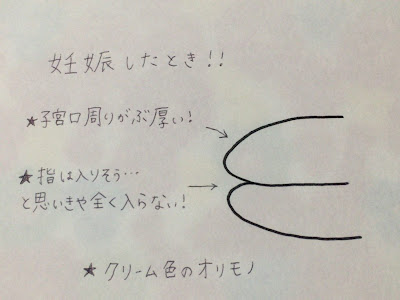 妊娠したとき!!
★子宮口周りがぶ厚い!
★指は入りそう…
と思いきや全く入らない!
★クリーム色のオリモノ